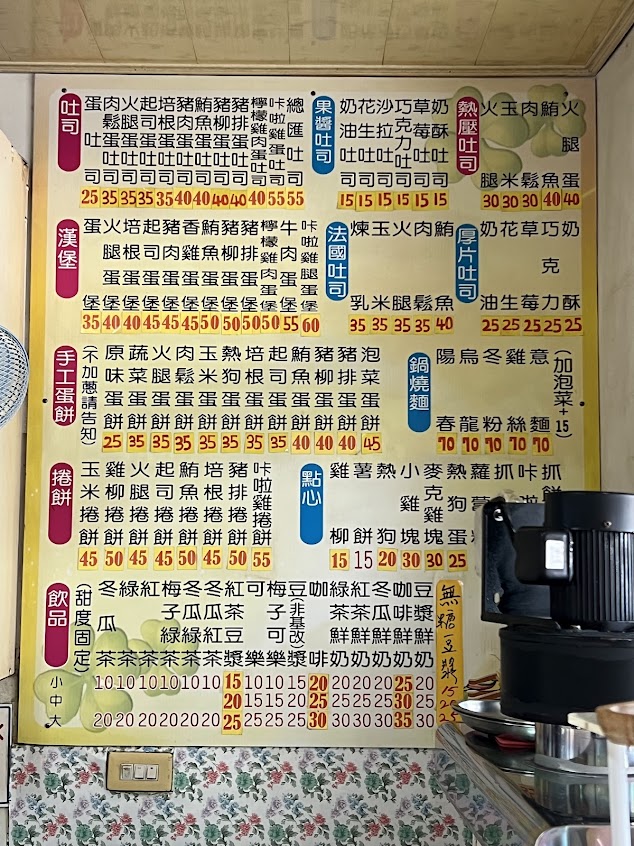 吐司
蛋吐司 25
肉鬆蛋吐司 35
火腿蛋吐司 35
起司蛋吐司 35
培根蛋吐司 35
豬肉蛋吐司 40
鮪魚蛋吐司 40
豬柳蛋吐司 40
豬排蛋吐司 40
檸檬雞肉蛋吐司 40
咔啦雞蛋吐司 55
總匯吐司 55
果醬吐司
奶油吐司 15
花生吐司 15
沙拉吐司 15
巧克力吐司 15
草莓吐司 15
奶酥吐司 15
熱壓吐司
火腿 30
玉米 30
肉鬆 30
鮪魚 40
火腿蛋 40
漢堡
蛋堡 35
火腿蛋堡 40
培根蛋堡 40
起司蛋堡 45
豬肉蛋堡 45
香雞蛋堡 45
鮪魚蛋堡 50
豬柳蛋堡 50
豬排蛋堡 50
檸檬雞肉蛋堡 50
牛肉蛋堡 55
咔啦雞腿蛋堡 60
法國吐司
煉乳 35
玉米 35
火腿 35
肉鬆 35
鮪魚 40
厚片吐司
奶油 25
花生 25
草莓 25
巧克力 25
奶酥 25
手工蛋餅
(不加蔥請告知)
原味蛋餅 25
蔬菜蛋餅 35
火腿蛋餅 35
肉鬆蛋餅 35
玉米蛋餅 35
熱狗蛋餅 35
培根蛋餅 35
起司蛋餅 35
鮪魚蛋餅 40
豬柳蛋餅 40
豬排蛋餅 40
泡菜蛋餅 45
鍋燒麵
陽春 70
烏龍 70
冬粉 70
雞絲 70
意麵 70
(加泡菜+15)
捲餅
玉米捲餅 45
雞柳捲餅 50
火腿捲餅 45
起司捲餅 45
鮪魚捲餅 50
培根捲餅 45
豬排捲餅 50
咔啦雞捲餅 55
點心
雞柳 15
薯餅 15
熱狗 20
小雞塊 30
麥克雞塊 30
熱狗蛋 25
蘿蔔
抓
咔
抓餅
飲品
(甜度固定)
冬瓜茶
綠茶
紅茶
梅子綠茶
冬瓜紅茶
紅茶豆漿
可樂
梅子可樂
豆漿(非基改)
咖啡
綠茶鮮奶
紅茶鮮奶
冬瓜鮮奶
咖啡鮮奶
豆漿鮮奶
小 10 10 10 10 10 15 10 10 15 20 20 20 20 25 20
中
大 20 20 20 20 20 25 25 25 25 30 30 30 30 35 30
無糖豆漿 15